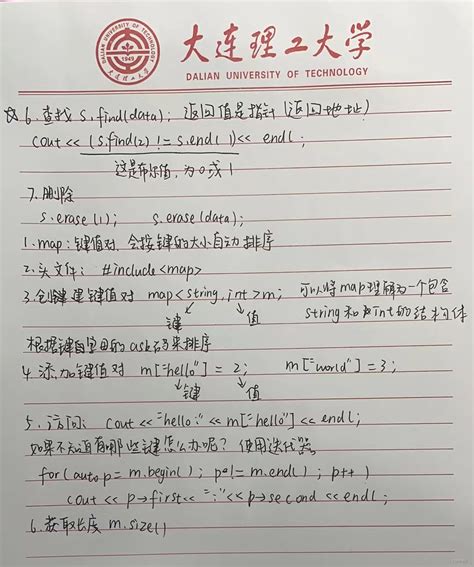 DALIAN UNIVERSITY OF TECHNOLOGY
1949
大连理工大学
DALIAN UNIVERSITY OF TECHNOLOGY
☆ 6. 查找 s.find(data); 返回值是指针(返回地址)
cout << (s.find(2) != s.end()) << endl;
这是布尔值, 为0或1
7. 删除
s.erase(1); s.erase(data);
1. map: 键值对, 会按键的大小自动排序
2. 头文件: #include<map>
3. 创建键值对 map<string,int>m; 可以将map理解为一个包含
键 值 string和int的结构体
根据键自里的ask码来排序
4. 添加键值对 m["hello"] = 2; m["world"] = 3;
键 值
5. 访问: cout << "hello:" << m["hello"] << endl;
如果不知道有哪些键怎么办呢? 使用迭代器
for(auto p = m.begin(); p != m.end(); p++)
cout << p->first << ":" << p->second << endl;
6. 获取长度 m.size()